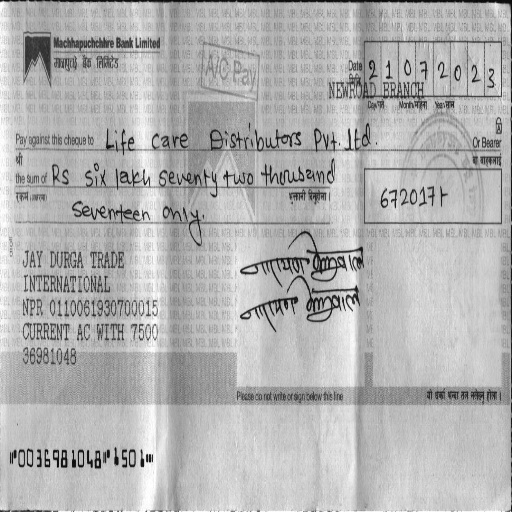 Machhapuchchhre Bank Limited
A/C Pay
Date 21072023
मिति
NEWROAD BRANCH
Day/गते Month/महिना Year/साल
Pay against this cheque to Life Care Distributors Pvt. ltd.
श्री
Or Bearer
वा वाहकलाई
the sum of RS six lakh seventy two thousand
seventeen only.
672017/-
JAY DURGA TRADE
INTERNATIONAL
NPR 0110061930700015
CURRENT AC WITH 7500
36981048
नारायण
नारायण
Please do not write or sign below this line
यो भन्दा तल
⑈0036981048⑈1501⑈